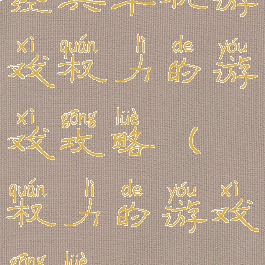 xì quán lì de yóu
戏权力的游
xì gōng lüè
戏攻略（
quán lì de yóu xì
权力的游戏
gōng lüè